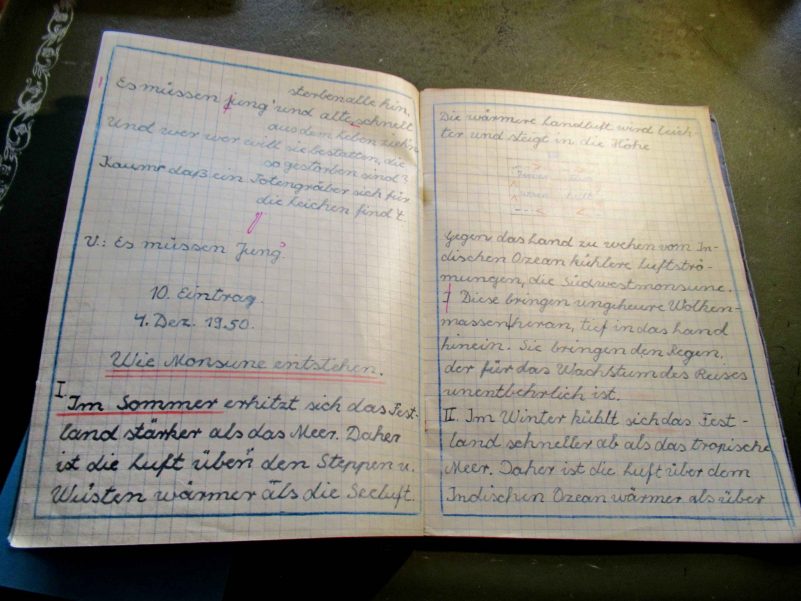 sterben alle hin,
Es müssen jung' und alte schnell
aus dem Leben ziehn
Und wer wer will sie bestatten, die
so gestorben sind?
Kaum daß ein Totengräber sich für
die Leichen find't.
V.: Es müssen Jung'
10. Eintrag.
4. Dez. 1950.
Wie Monsune entstehen.
I.
Im Sommer erhitzt sich das Fest-
land stärker als das Meer. Daher
ist die Luft über den Steppen u.
Wüsten wärmer als die Seeluft.
Die wärmere Landluft wird leich
ter und steigt in die Höhe
Gegen das Land zu wehen vom In-
dischen Ozean kühlere Luftströ-
mungen, die Südwestmonsune.
Diese bringen ungeheure Wolken-
massen heran, tief in das Land
hinein. Sie bringen den Regen,
der für das Wachstum des Reises
unentbehrlich ist.
II. Im Winter kühlt sich das Fest-
land schneller ab als das tropische
Meer. Daher ist die Luft über dem
Indischen Ozean wärmer als über